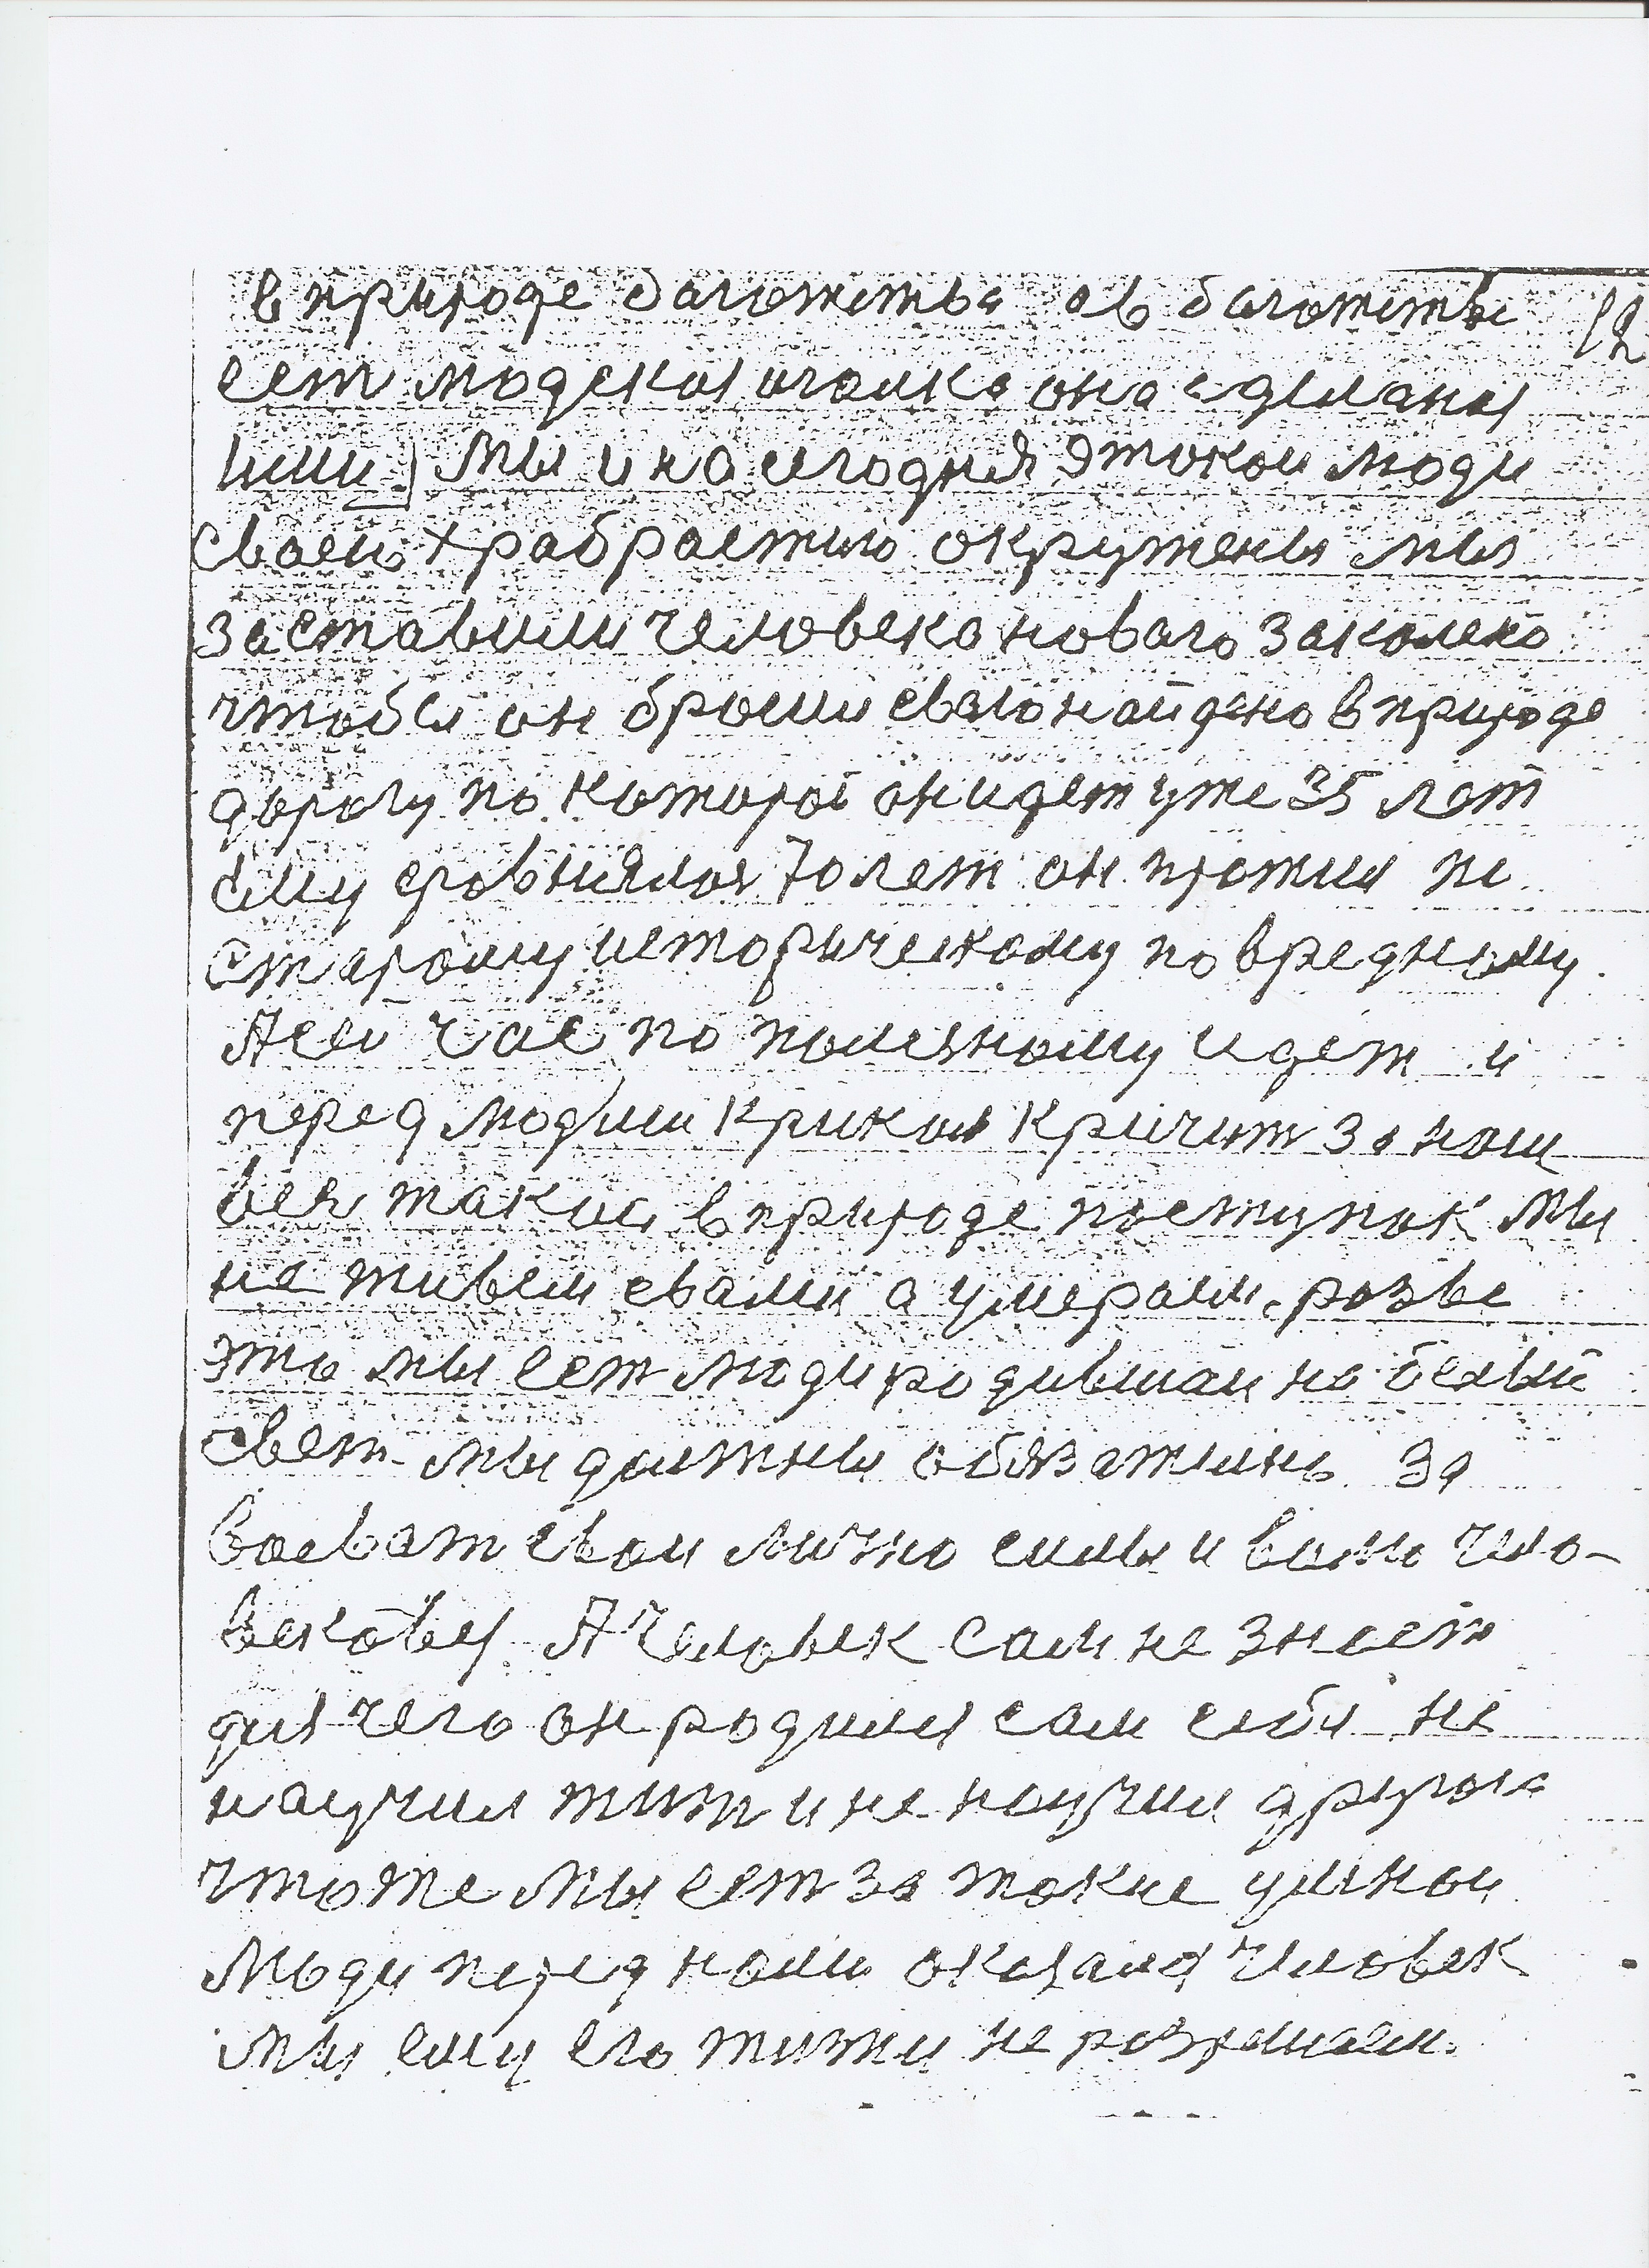 в природе баготства а в баготстве 12
ест людская иголка она сделаная
ими Мы и на сегодня этакои люди
своею храбрастию окружены мы
заставили человека новаго закалека
чтобы он бросил сваю найдено в природе
дорогу по которой он идет уже 35 лет
ему сровнялоя 70 лет он прожил по
старому историческому по вредному
А сей час по полезному идет и
перед людими криком кричит за наш
вех такои в природе поступак Мы
не живем свами а умераем, розве
это мы ест люди родившаи на белый
свет мы должны обязатино за
воеват свои лично силы и волю чело-
вековы А человек сам не знает
для чего он родился сам себя не
научил жит и не научил другога
что же мы ест за такие умнои
люди перед нами оказался человек
мы ему его жизни не розрешаем.